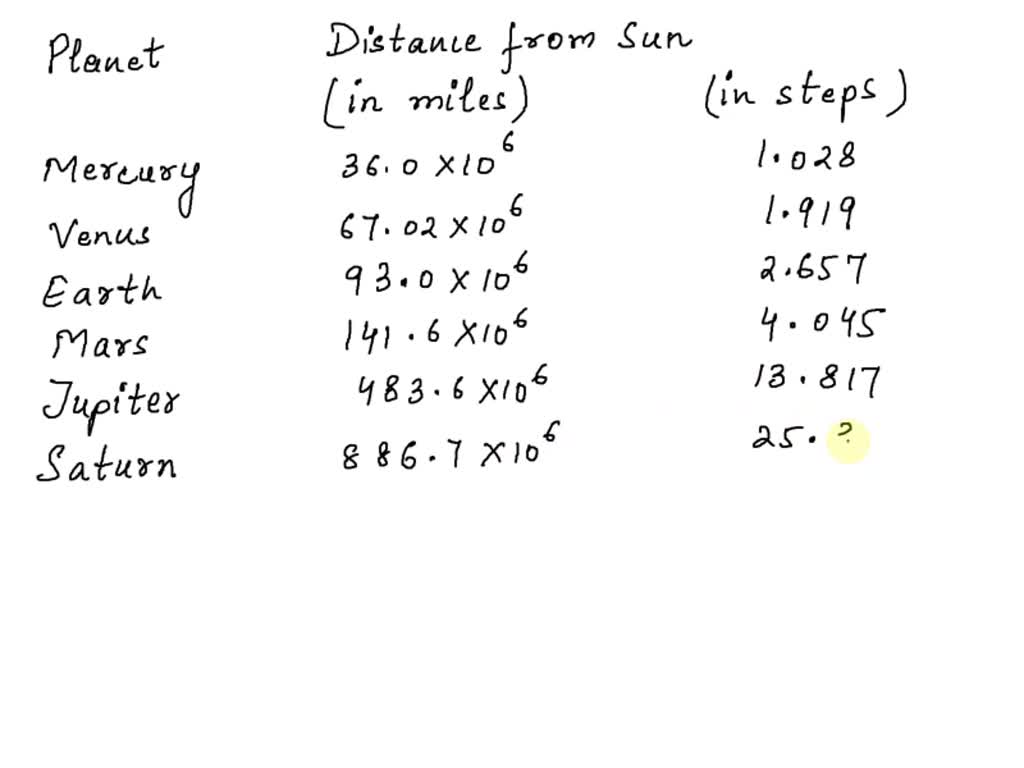 Planet Distance from Sun
(in miles) (in steps)
Mercury 36.0 × 10^6 1.028
Venus 67.02 × 10^6 1.919
Earth 93.0 × 10^6 2.657
Mars 141.6 × 10^6 4.045
Jupiter 483.6 × 10^6 13.817
Saturn 886.7 × 10^6 25.